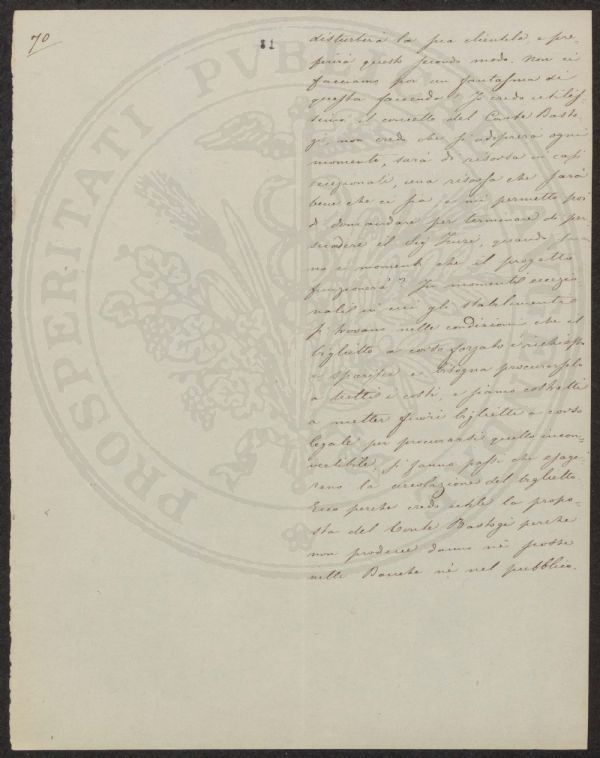 70
81
disturberà la sua clientela e pre-
ferirà questo secondo modo. Non ci
facciamo poi un fantasma di
questa faccenda! Io credo utilis-
simo il concetto del Conte Basto-
gi, non credo che si adoprerà ogni
momento, sarà di risorsa in casi
eccezionali, una risorsa che sarà
bene che ci sia, e mi permetto poi
di domandare per terminare di per-
suadere il Sig, quando sa-
no i momenti che il progetto
funzionerà? In momenti eccezio-
nali in cui gli stabilimenti
si trovano nelle condizioni che il
biglietto a corso forzato è richiesto
e sparisce e bisogna procurarselo
a tutti i costi, e siamo costretti
a metter fuori biglietti a corso
legale per procurarsi quelli incon-
vertibili, si fanno passi che esage-
rano la circolazione del biglietto.
Ecco perchè credo utile la propo-
sta del Conte Bastogi perchè
non produce danno nè scosse
nelle Banche nè nel pubblico.
PROSPERITATI PVBLICAE